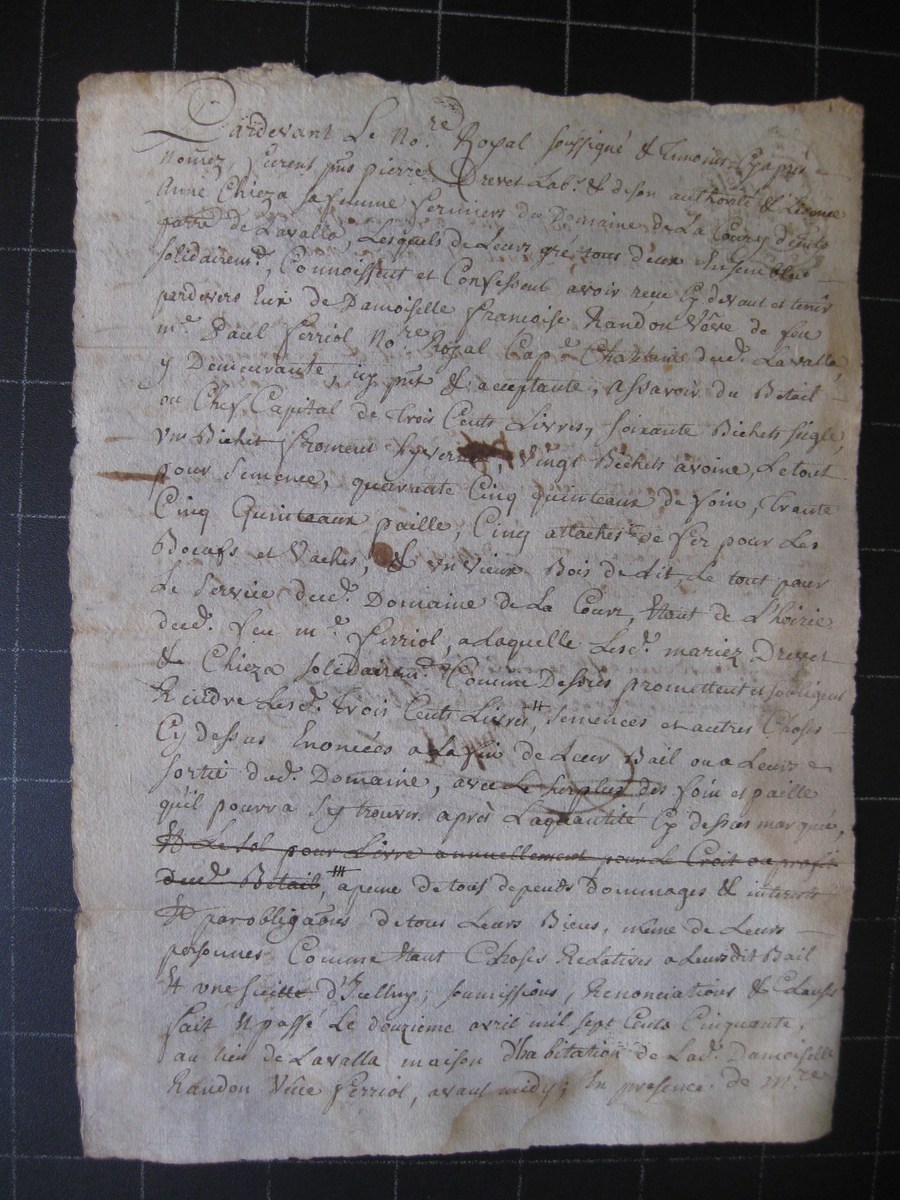 Pardevant Le No.re Royal soussigné & Temoins Cy apres
nomez furent pnts pierre Drevet Lab.r & de son authorité & Licence
Anne Chieza sa femme fermiers du Domaine de La Cour
de Lavalla, Lesquels de Leurs gré tous deux Ensemblem
solidairem.t, Connoissent et Confessent avoir recu Cy devant et tenir
pardevers Eux de Damoiselle francoise Randon Veuve de feu
m.e Paul ferriol No.re Royal Cap.e Chatelain dud. Lavalla,
y Demeurante, icy pnte & acceptante, assavoir du Betail
ou Chef Capital de trois Cents Livres, soixante Bichets seigle,
un Bichet froment vingt Bichets avoine, Le tout
pour semence, quarante Cinq quinteaux de foin, trante
Cinq Quinteaux paille, Cinq attaches de fer pour Les
Boeufs et Vaches, & un vieux Bois de Lit, Le tout pour
Le service dud. Domaine de La Cour, Etant de L'hoirie
dud. feu m.e ferriol, a Laquelle Lesd. mariez Drevet
& Chieza solidairem.t Comme Dessus promettent et sobligent
Rendre Lesd. trois Cents Livres, semences et autres Choses
Cy dessus Enoncées a La fin de Leur Bail ou a Leurs
sortie dud. Domaine, avec Le surplus des foin et paille
qu'il pourra s'y trouver après La quantité Cy dessus marqué,
Et Le sol pour Livre annuellement pour Le Croit ou profit
dud. Betail, a peine de tous depends Dommages & interests
Et par obligaons de tous Leurs Biens, même de Leurs
personnes Comme Etant Choses Relatives a Leursdit Bail
Et une suitte d'Icelluy; soumissions, Renonciations & Clauses
fait Et passé Le douzieme avril mil sept Cents Cinquante,
au lieu de Lavalla maison d'habitation de Lad. Damoiselle
Randon Veuve ferriol, avant midy; En presence de m.re